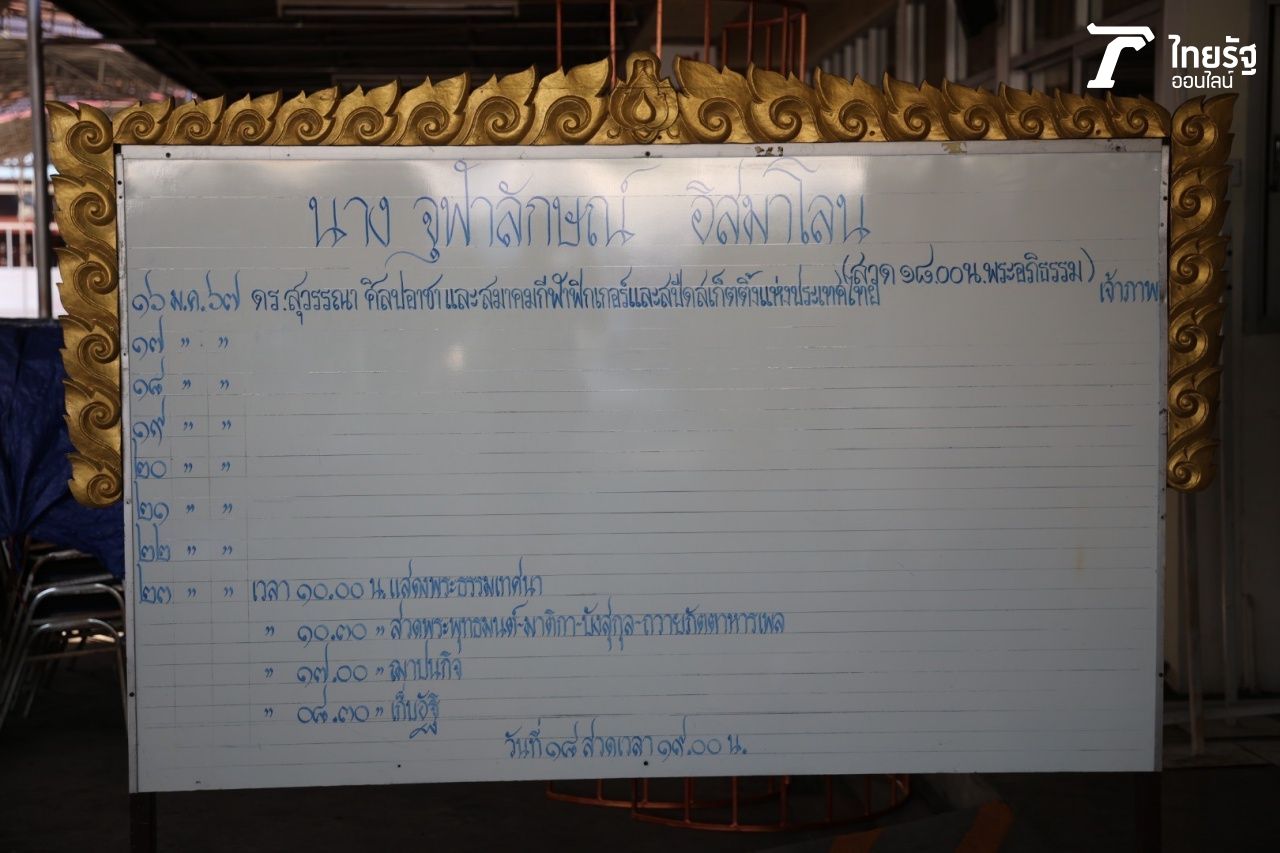 ไทยรัฐ
ออนไลน์
นาง จุฬาลักษณ์ อิสมาโลน
(สวด ๑๘.๐๐ น. พระอภิธรรม)
๑๖ ม.ค. ๖๗ ดร.สุวรรณา ศิลปอาชา และสมาคมกีฬาฟิกเกอร์และสปีดสเก็ตติ้งแห่งประเทศไทย เจ้าภาพ
๑๗ " "
๑๘ " "
๑๙ " "
๒๐ " "
๒๑ " "
๒๒ " "
๒๓ " " เวลา ๑๐.๐๐ น. แสดงพระธรรมเทศนา
" ๑๐.๓๐ " สวดพระพุทธมนต์-มาติกา-บังสุกุล-ถวายภัตตาหารเพล
" ๑๗.๐๐ " ฌาปนกิจ
" ๐๘.๓๐ " เก็บอัฐิ
วันที่ ๑๘ สวดเวลา ๑๙.๐๐ น.